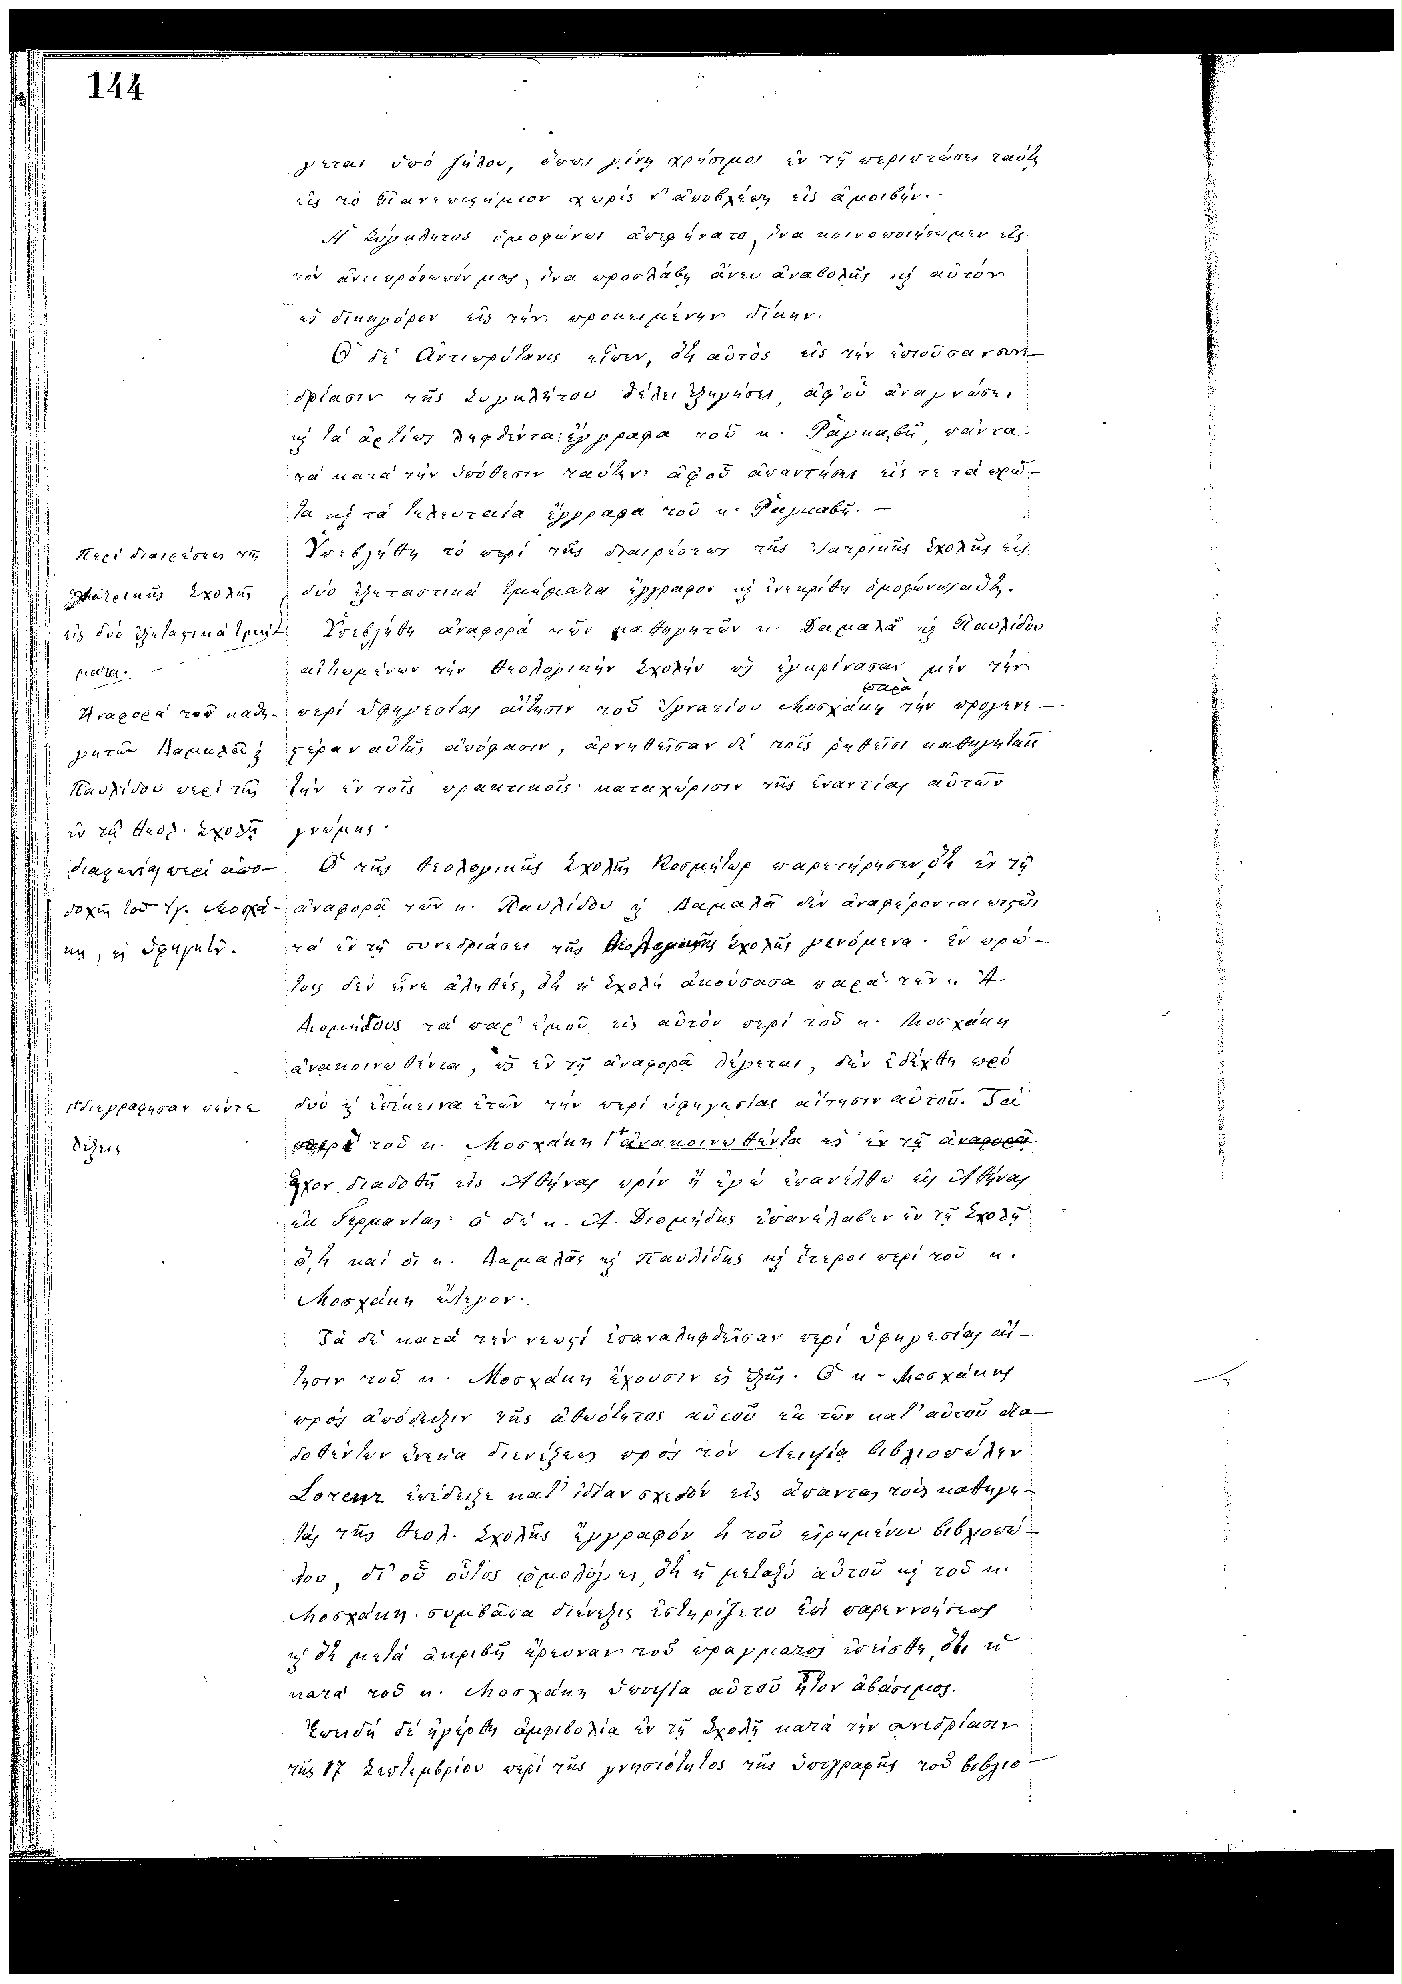 144
γεται ὑπὸ ζήλου, ὅπως γίνῃ χρήσιμος ἐν τῇ περιστάσει ταύτῃ
εἰς τὸ Πανεπιστήμιον χωρὶς ν' ἀποβλέπῃ εἰς ἀμοιβήν.
Ἡ Σύγκλητος ὁμοφώνως ἀπεφήνατο, ἵνα κοινοποιήσωμεν εἰς
τὸν ἀντιπρόσωπόν μας, ἵνα προσλάβῃ ἄνευ ἀναβολῆς κỳ αὐτὸν
ὡς δικηγόρον εἰς τὴν προκειμένην δίκην.
Ὁ δὲ Ἀντιπρύτανις εἶπεν, ὅτι αὐτὸς εἰς τὴν ἐπιοῦσαν συνε-
δρίασιν τῆς Συγκλήτου θέλει ἐξηγήσει, ἀφ' οὗ ἀναγνώσει
κỳ τὰ ἀρτίως ληφθέντα ἔγγραφα τοῦ κ. Ῥαγκαβῆ, πάντα
τὰ κατὰ τὴν ὑπόθεσιν ταύτην· ἀφοῦ ἀπαντήσει εἴς τε τὰ πρῶ-
τα κỳ τὰ τελευταῖα ἔγγραφα τοῦ κ. Ῥαγκαβῆ. —
Περὶ διαιρέσεως τῆς
Ἰατρικῆς Σχολῆς
εἰς δύο ἐξεταστικὰ τμή-
ματα.
Ὑπεβλήθη τὸ περὶ τῆς διαιρέσεως τῆς Ἰατρικῆς Σχολῆς εἰς
δύο ἐξεταστικὰ τμήματα ἔγγραφον κỳ ἐνεκρίθη ὁμοφώνως
Ἀναφορὰ τοῦ καθη-
γητῶν Δαμαλᾶ κỳ
Παυλίδου περὶ τῆς
ἐν τῇ Θεολ. Σχολῇ
διαφωνίας περὶ ἀπο-
δοχῆς τοῦ Ἰγ. Μοσχά-
κη, ὡς ὑφηγητῇ.
Ὑπεβλήθη ἀναφορὰ τῶν καθηγητῶν κ. Δαμαλᾶ κỳ Παυλίδου
αἰτιωμένων τὴν Θεολογικὴν Σχολὴν ὡς ἐγκρίνασαν μὲν τὴν
περὶ ὑφηγεσίας αἴτησιν τοῦ Ἰγνατίου Μοσχάκη παρὰ τὴν προγενε-
στέραν αὐτῆς ἀπόφασιν, ἀρνηθεῖσαν δὲ τοῖς ῥηθεῖσι καθηγηταῖς
τὴν ἐν τοῖς πρακτικοῖς καταχώρισιν τῆς ἐναντίας αὐτῶν
γνώμης.
Ὁ τῆς Θεολογικῆς Σχολῆς Κοσμήτωρ παρετήρησεν, ὅτι ἐν τῇ
ἀναφορᾷ τῶν κ. Παυλίδου κỳ Δαμαλᾶ δὲν ἀναφέρονται πιστῶς
τὰ ἐν τῇ συνεδριάσει τῆς Θεολογικῆς Σχολῆς γενόμενα. ἐν πρώ-
τοις δὲν εἶνε ἀληθές, ὅτι ἡ Σχολὴ ἀκούσασα παρὰ τοῦ κ. Α.
Διομήδους τὰ παρ' ἐμοῦ εἰς αὐτὸν περὶ τοῦ κ. Μοσχάκη
ἀνακοινωθέντα, ὡς ἐν τῇ ἀναφορᾷ λέγεται, δὲν ἐδέχθη πρὸ
δύο κỳ ἐπέκεινα ἐτῶν τὴν περὶ ὑφηγεσίας αἴτησιν αὐτοῦ. Τὰ
διεγράφησαν πέντε
λέξεις
περὶ τοῦ κ. Μοσχάκη ἀνακοινωθέντα ὡς ἐν τῇ ἀναφορᾷ
εἶχον διαδοθῆ εἰς Ἀθήνας πρὶν ἢ ἐγὼ ἐπανέλθω εἰς Ἀθήνας
ἐκ Γερμανίας· ὁ δὲ κ. Α. Διομήδης ἐπανέλαβεν ἐν τῇ Σχολῇ
ὅ,τι καὶ οἱ κ. Δαμαλᾶς κỳ Παυλίδης κỳ ἕτεροι περὶ τοῦ κ.
Μοσχάκη ἔλεγον.
Τὰ δὲ κατὰ τὴν νεωστὶ ἐπαναληφθεῖσαν περὶ ὑφηγεσίας αἴ-
τησιν τοῦ κ. Μοσχάκη ἔχουσιν ὡς ἑξῆς. Ὁ κ. Μοσχάκης
πρὸς ἀπόδειξιν τῆς ἀθωότητος αὐτοῦ ἐκ τῶν κατ' αὐτοῦ δια-
δοθέντων ἕνεκα διενέξεως πρὸς τὸν Λειψίᾳ βιβλιοπώλην
Lorenz ἐπέδειξε κατ' ἰδίαν σχεδὸν εἰς ἅπαντας τοὺς καθηγη-
τὰς τῆς Θεολ. Σχολῆς ἔγγραφόν τι τοῦ εἰρημένου βιβλιοπώ-
λου, δι' οὗ οὗτος ὡμολόγει, ὅτι ἡ μεταξὺ αὐτοῦ κỳ τοῦ κ.
Μοσχάκη συμβᾶσα διένεξις ἐστηρίζετο ἐπὶ παρεννοήσεως
κỳ ὅτι μετὰ ἀκριβῆ ἔρευναν τοῦ πράγματος ἐπείσθη, ὅτι ἡ
κατὰ τοῦ κ. Μοσχάκη ὑποψία αὐτοῦ ἦτον ἀβάσιμος.
Ἐπειδὴ δὲ ἠγέρθη ἀμφιβολία ἐν τῇ Σχολῇ κατὰ τὴν συνεδρίασιν
τῆς 17 Σεπτεμβρίου περὶ τῆς γνησιότητος τῆς ὑπογραφῆς τοῦ βιβλιο-